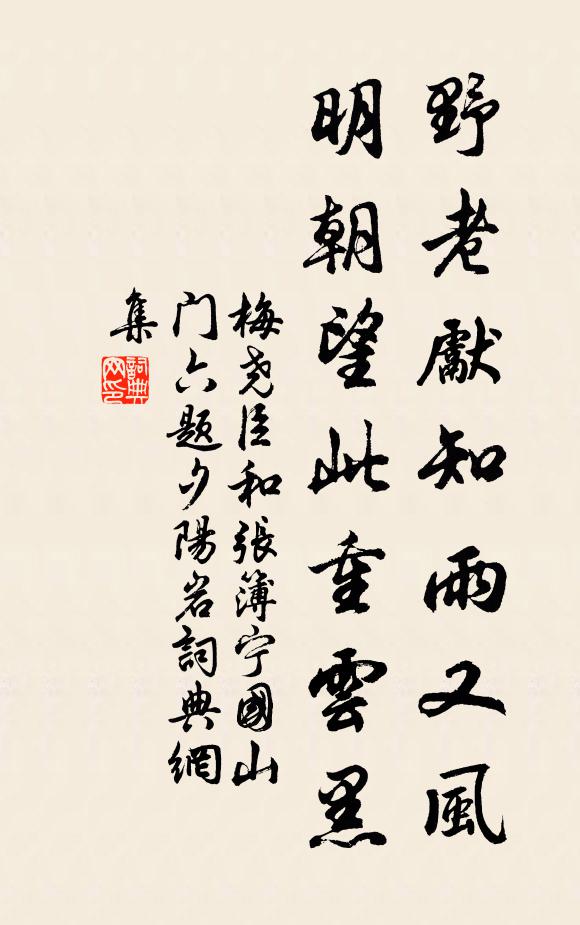 野老獻知雨又風
明朝望此重雲黑
梅尧臣和張簿宁國山
门六题夕陽岩詞典網
集
詞典
网印